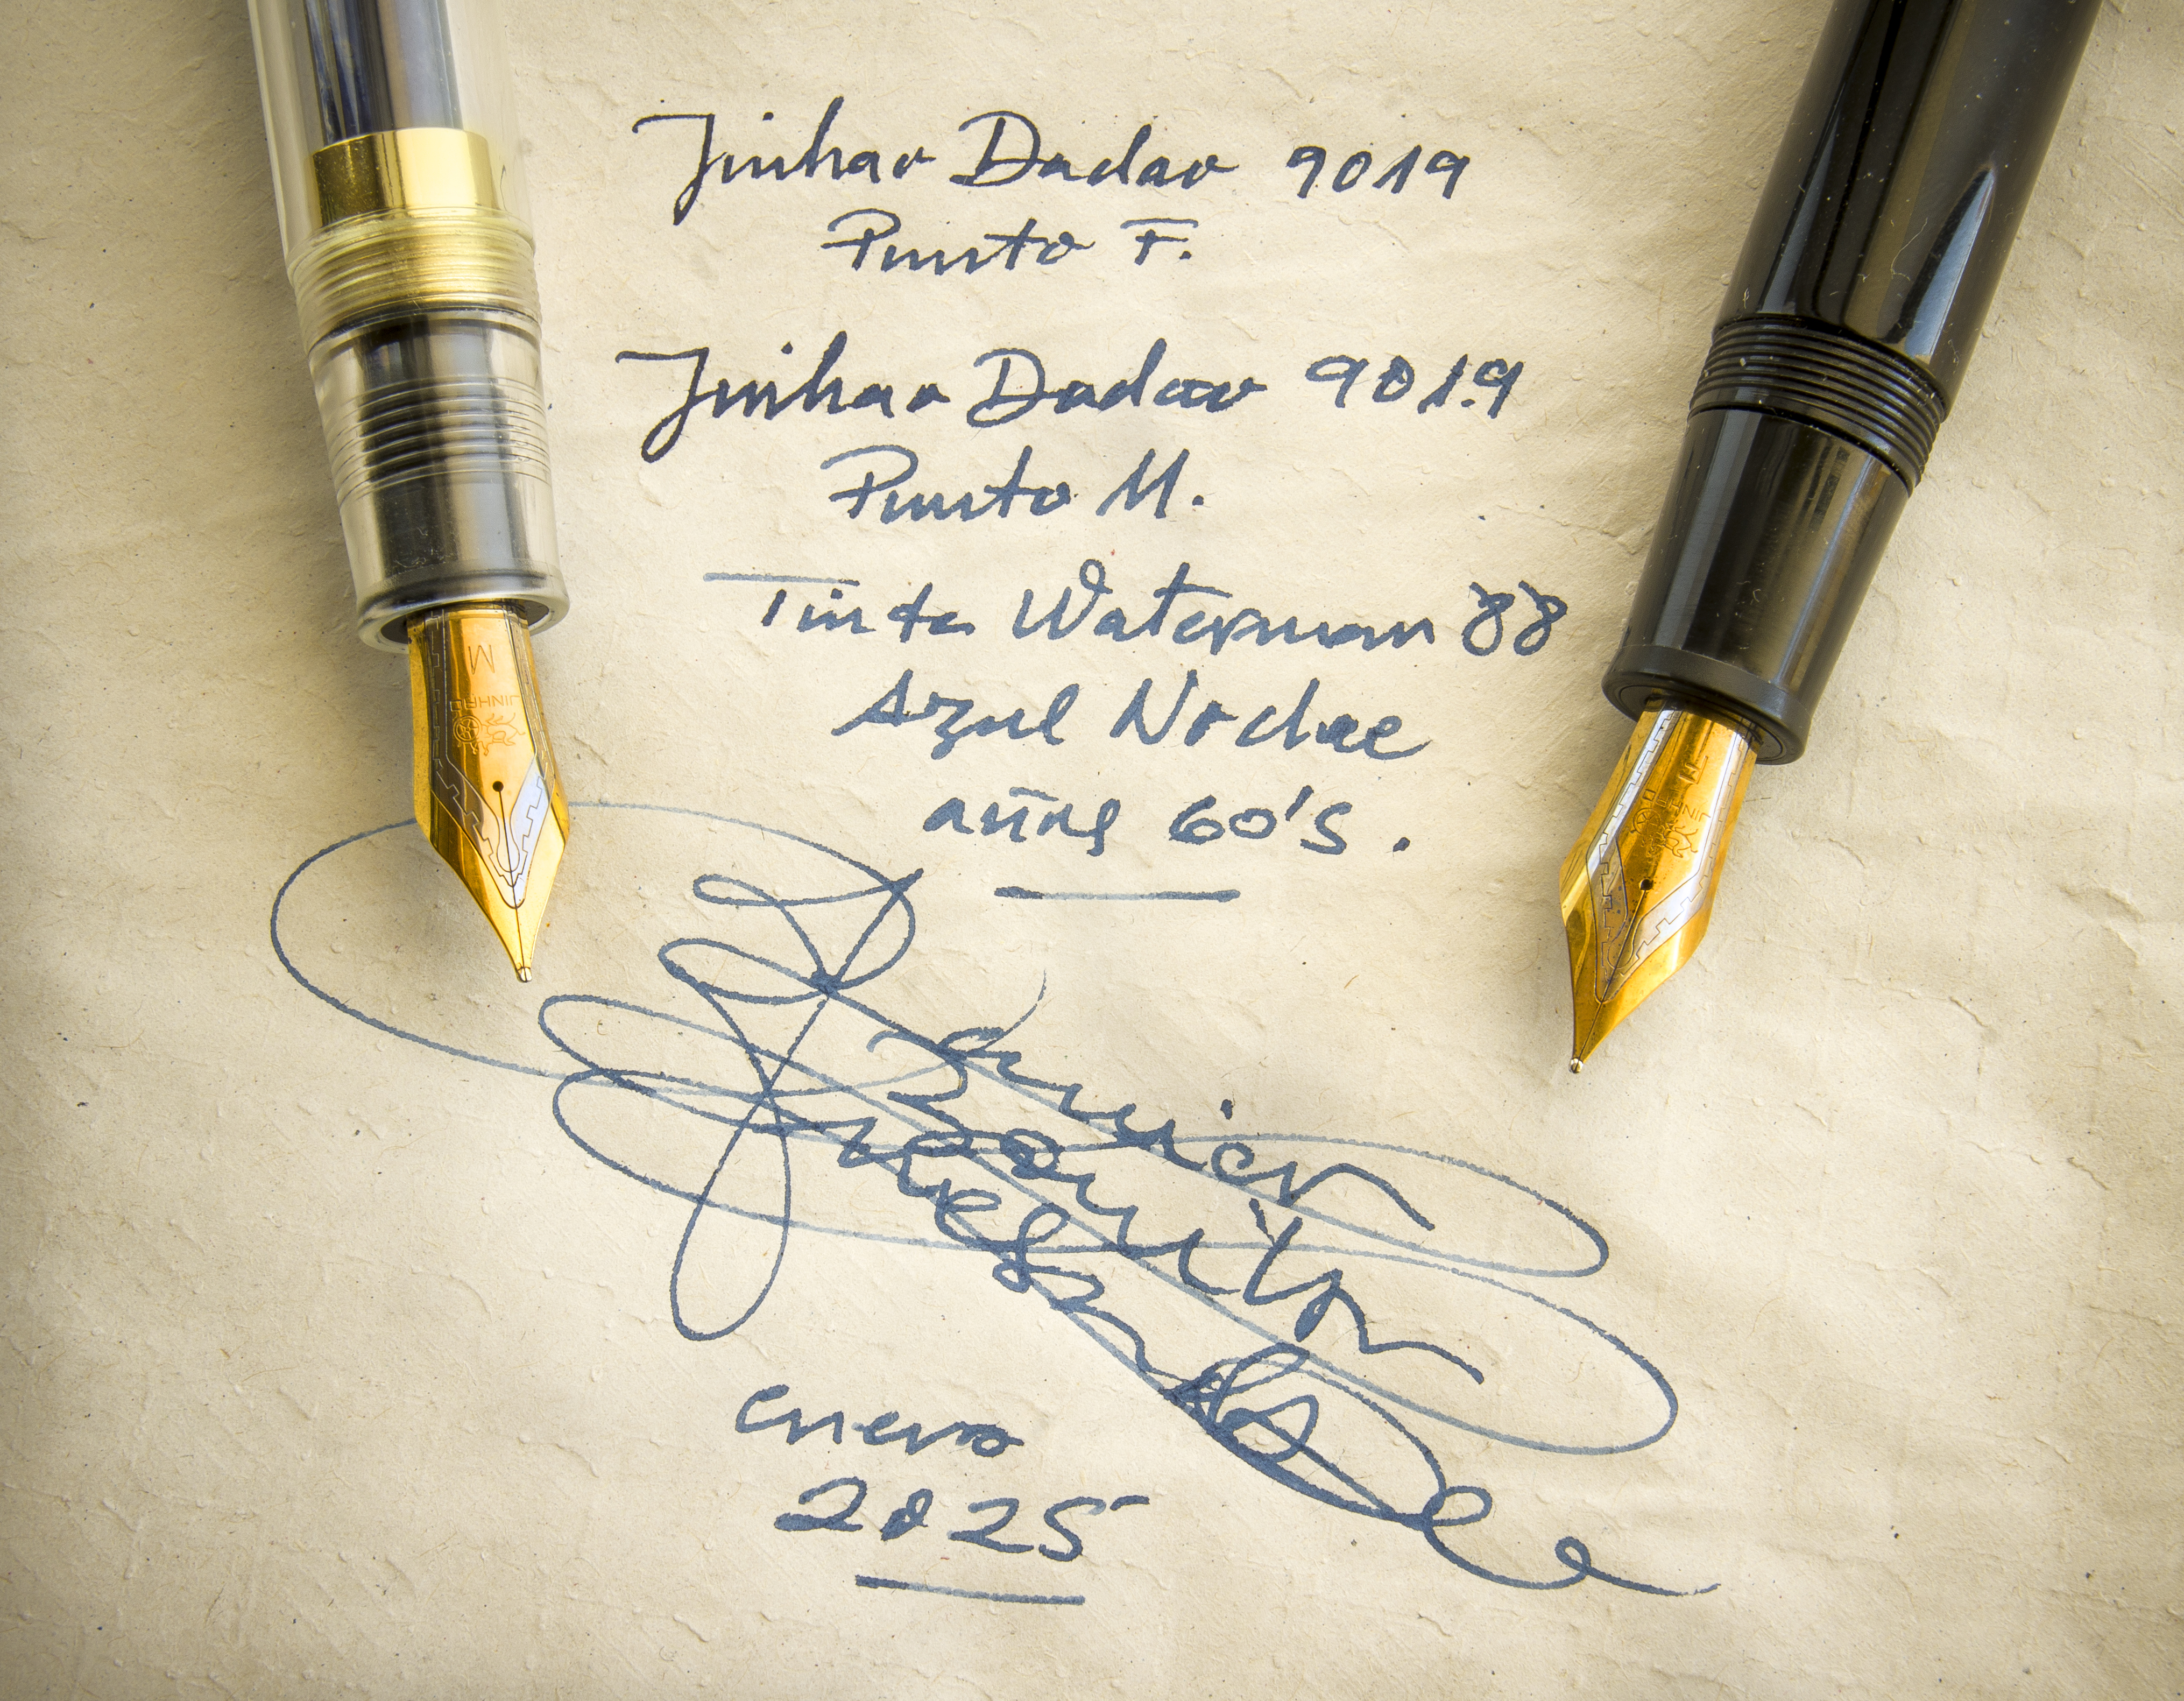 Jinhao Dadao 9019
Punto F.
Jinhao Dadao 9019
Punto M.
Tinta Waterman 88
Azul Noche
años 60's.
enero
2025
M
JINHAO
JINHAO